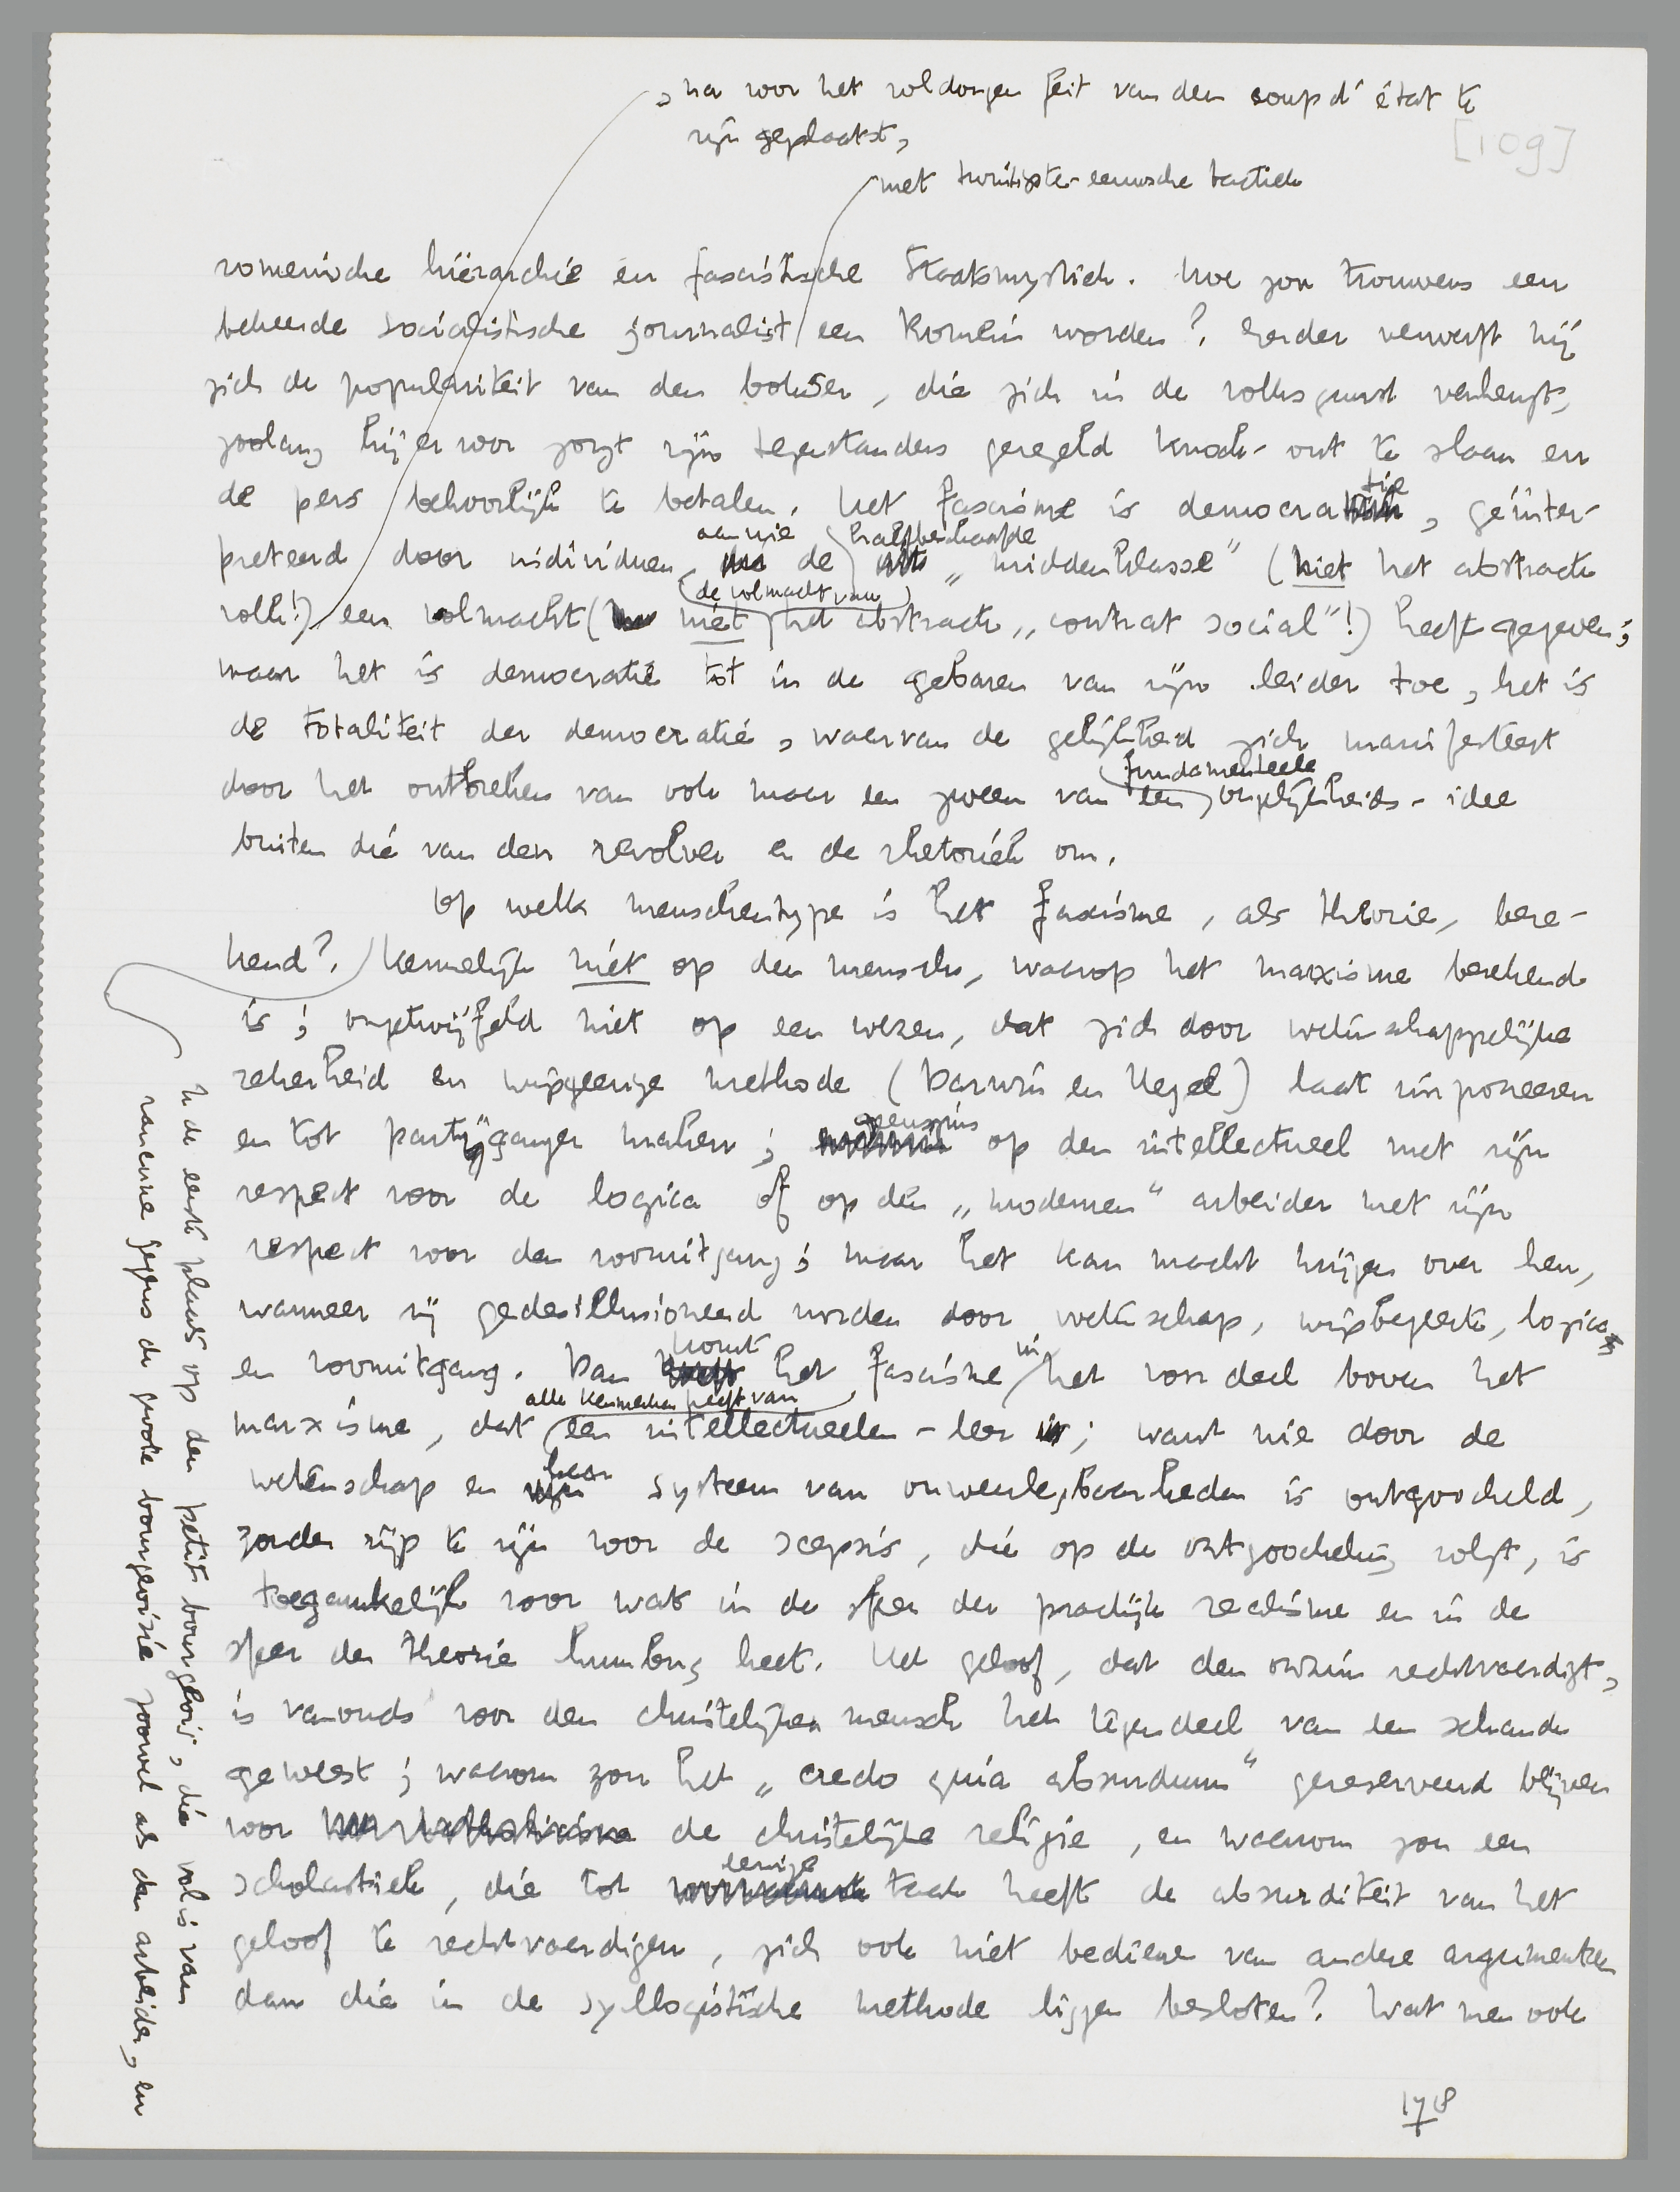 , na voor het voldongen feit van den coup d'état te
zijn geplaatst,
[109]
met twintigste-eeuwsche tactiek
romeinsche hiërarchie en fascistische Staatsmystiek. Hoe zou trouwens een
bekeerde socialistische journalist een Romein worden? Eerder verwerft hij
zich de populariteit van den bokser, die zich in de volksgunst verheugt,
zoolang hij er voor zorgt zijn tegenstanders geregeld knock-out te slaan en
de pers behoorlijk te betalen. Het fascisme is democratie, geïnter-
preteerd door individuen, aan wie de halfbeschaafde „middenklasse" (niet het abstracte
volk!) een volmacht (niet de volmacht van het abstracte „contrat social"!) heeft gegeven;
maar het is democratie tot in de gebaren van zijn leider toe, het is
de totaliteit der democratie, waarvan de gelijkheid zich manifesteert
door het ontbreken van ook maar een zweem van een fundamenteele ongelijkheids-idee
buiten die van den revolver en de rhetoriek om.
Op welk menschentype is het fascisme, als theorie, bere-
kend? Kennelijk niet op den mensch, waarop het marxisme berekend
is; ongetwijfeld niet op een wezen, dat zich door wetenschappelijke
zekerheid en wijsgeerige methode (Darwin en Hegel) laat imponeeren
en tot partijganger maken; geenszins op den intellectueel met zijn
respect voor de logica of op den „modernen" arbeider met zijn
respect voor den vooruitgang; maar het kan macht krijgen over hen,
wanneer zij gedesillusioneerd worden door wetenschap, wijsbegeerte, logica
en vooruitgang. Dan komt het fascisme in het voordeel boven het
marxisme, dat alle kenmerken heeft van een intellectueelen-leer; want wie door de
wetenschap en haar systeem van onweerlegbaarheden is ontgoocheld,
zonder rijp te zijn voor de scepsis, die op de ontgoocheling volgt, is
toegankelijk voor wat in de sfeer der practijk realisme en in de
sfeer der theorie humbug heet. Het geloof, dat den onzin rechtvaardigt,
is vanouds voor den christelijken mensch het tegendeel van een schande
geweest; waarom zou het „credo quia absurdum" gereserveerd blijven
voor de christelijke religie, en waarom zou een
scholastiek, die tot eenige taak heeft de absurditeit van het
geloof te rechtvaardigen, zich ook niet bedienen van andere argumenten
dan die in de syllogistische methode liggen besloten? Wat men ook
In de eerste plaats op den petit bourgeois, die vol is van
rancune jegens de groote bourgeoisie zoowel als den arbeider, en
178